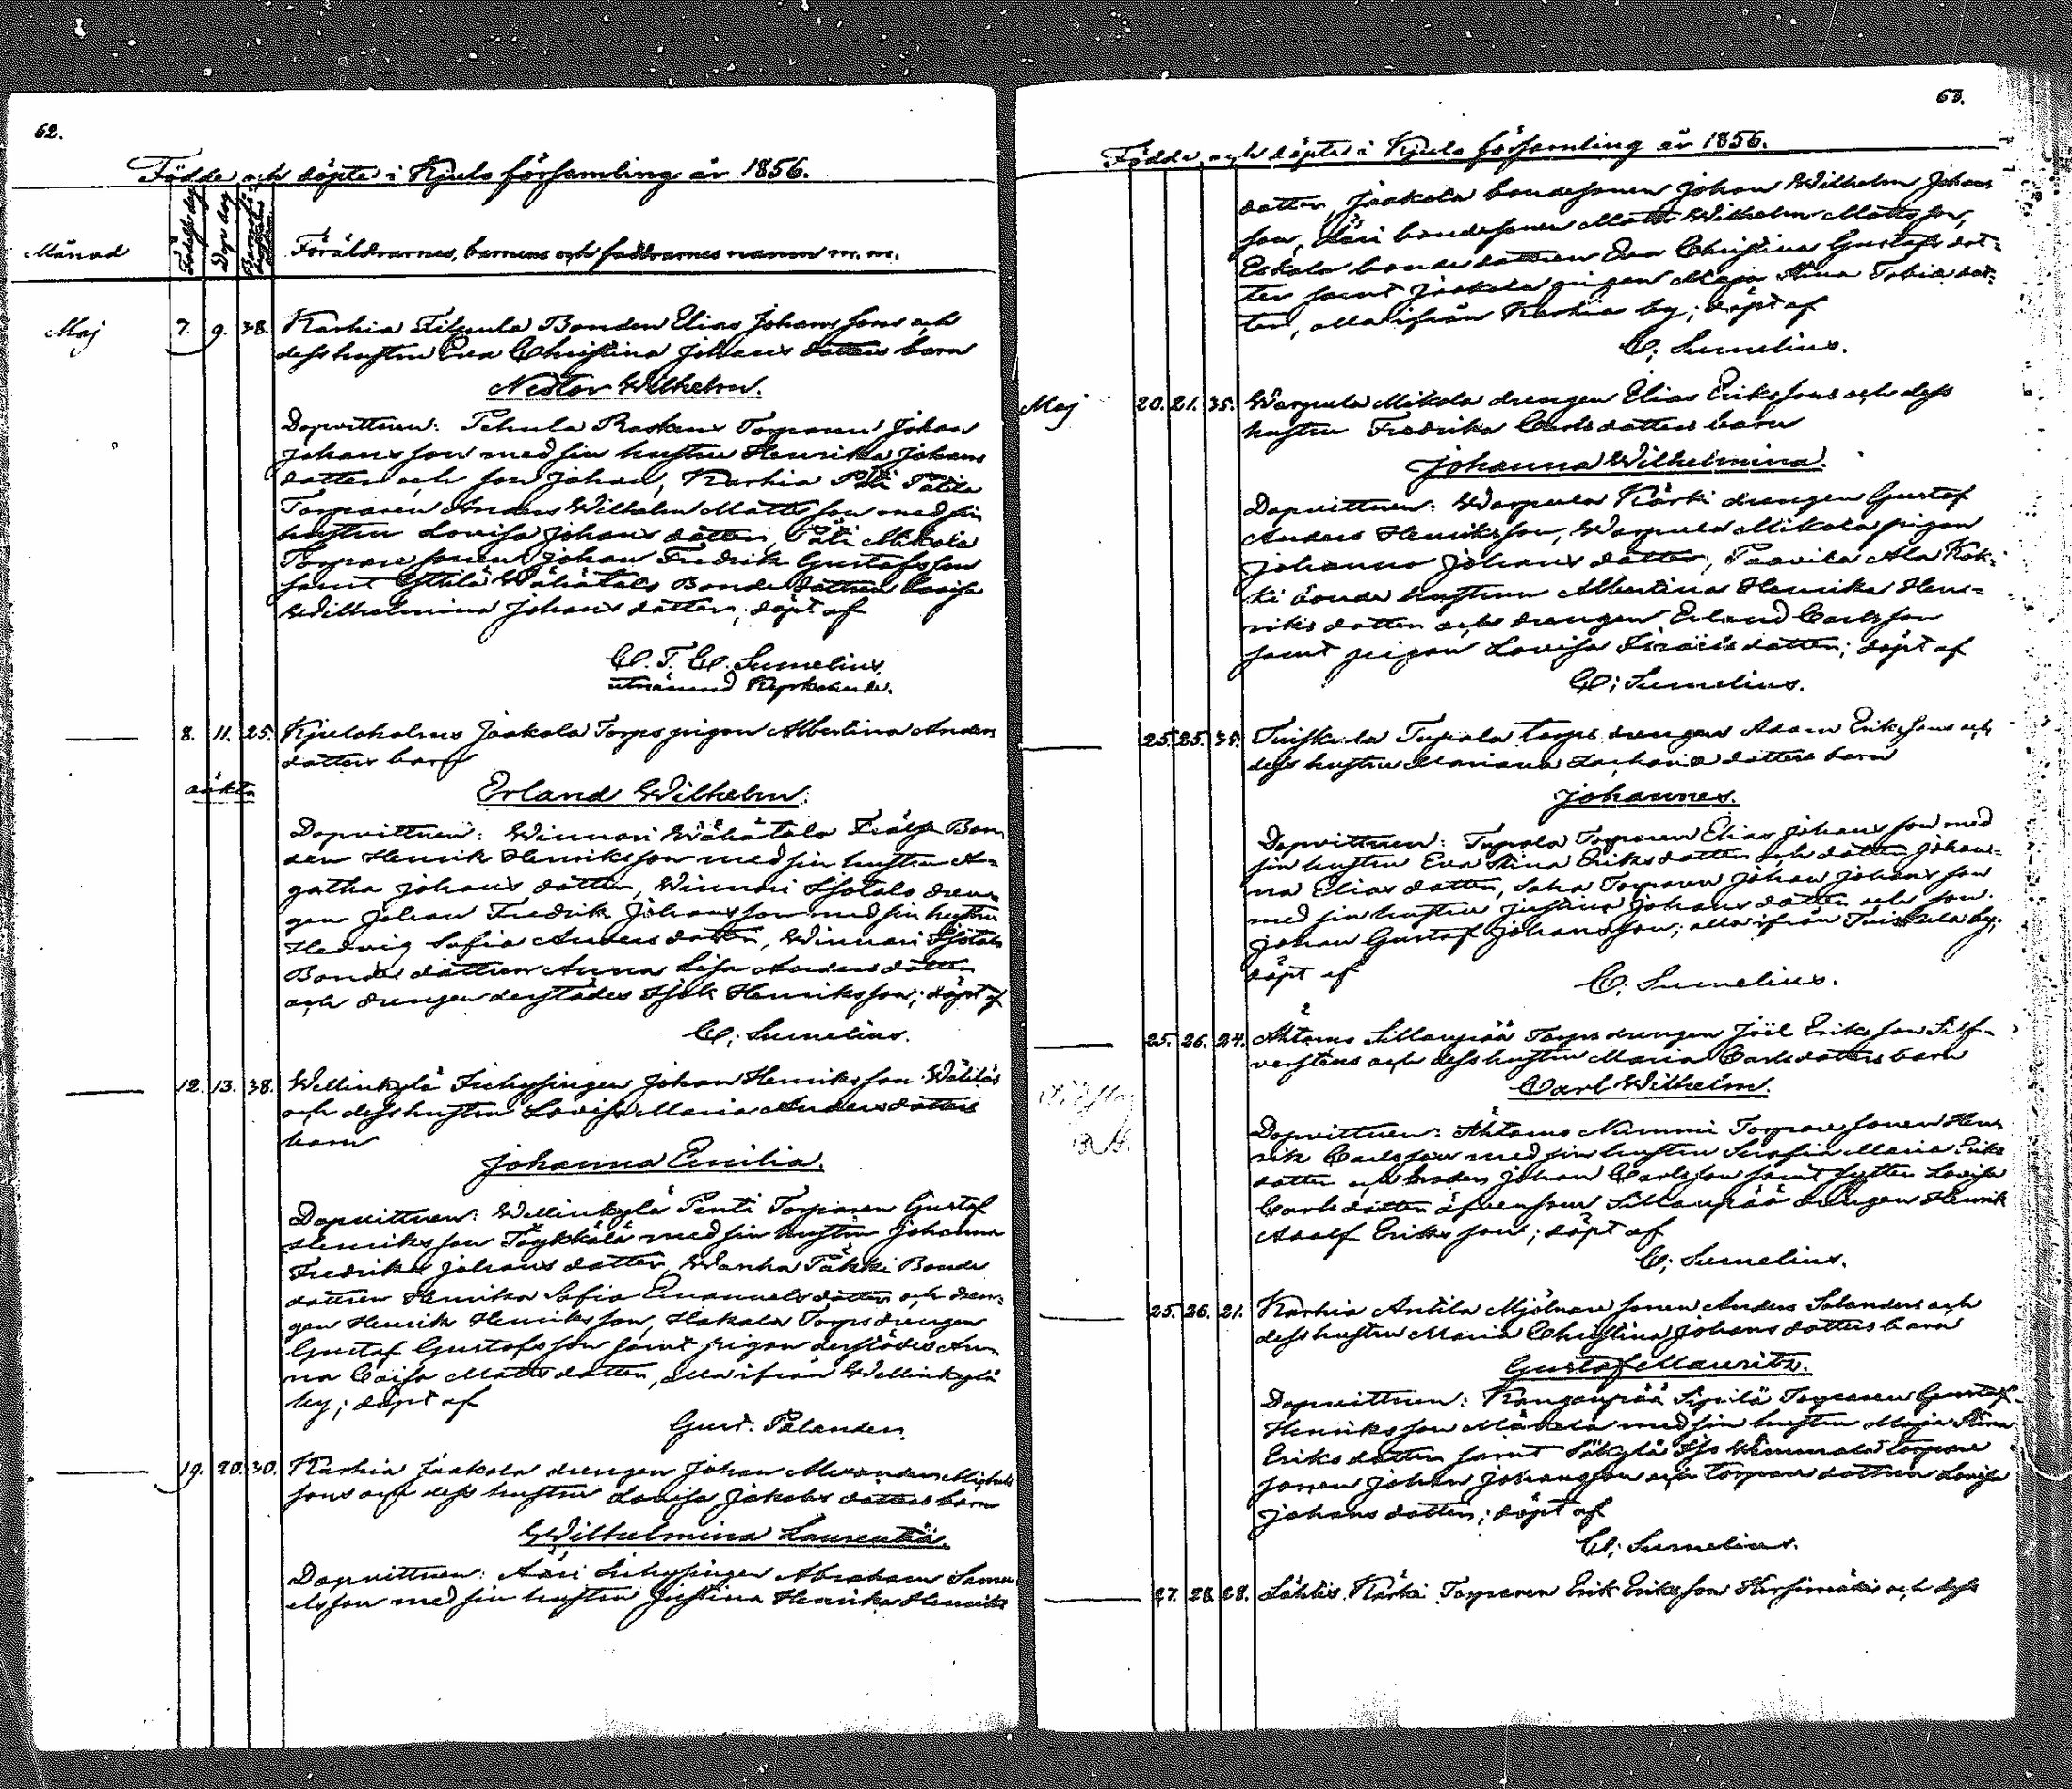 62.
Födde och döpte i Kjulo församling år 1856.
Månad
Födelse dag
Dop dag
Föräldrarnes, barnens och faddrarnes namn m. m.
Maj 7. 9. 38. Karhia Filpula Bonden Elias Johanssons och
dess hustru Eva Christina Johans dotters barn
Nestor Wilhelm.
Dopvittnen: Torparen Johan
Johansson med sin hustru Henrika Johans
dotter och son Johan, Karhia
Torparen Anders Wilhelm Matts son med sin
hustru Lovisa Johans dotter, Mikola
Torpare sonen Johan Fredrik Gustafsson
samt Wähätalo Bonde dottren Lovisa
Wilhelmina Johans dotter; döpt af
C. T. C. Sumelius,
8. 11. 25. Kjuloholms Jaakola Torps pigan Albertina Anders
dotters barn
oäkta
Erland Wilhelm.
Dopvittnen: Winnari Wähätalo Frälse Bon
den Henrik Henriksson med sin hustru A=
gatha Johans dotter, Winnari Isotalo dren
gen Johan Fredrik Johansson med sin hustru
Hedvig Sofia Anders dotter, Winnari Isotalo
Bonde dottren Anna Lisa Anders dotter
och drengen derstädes Isak Henriksson; döpt af
C. Sumelius.
12. 13. 38. Wellinkylä Inhysingen Johan Henriksson
och dess hustru Lovisa Maria Anders dotters
barn
Johanna Emilia.
Dopvittnen: Wellinkylä Pentti Torparen Gustaf
Henriksson med sin hustru Johanna
Fredrika Johans dotter, Wanha Bonde
dottren Henrika Sofia Emanuels dotter och dren=
gen Henrik Henriksson, Hakala Torps drengen
Gustaf Gustafsson samt pigan derstädes An
na Caisa Matts dotter, alla ifrån Wellinkylä
by; döpt af
Gust. Polander.
19. 20. 30. Karhia Jaakola drengen Johan Alexander Michels
sons och dess hustru Lovisa Jakobs dotters barn
Wilhelmina Laurentia.
Dopvittnen: Inhysingen Abraham Samu
elsson med sin hustru Justina Henrika Henriks
63.
Födde och döpte i Kjulo församling år 1856.
dotter, Jaakola bondesonen Johan Wilhelm Johans
son, bondesonen Matts Wilhelm Mattsson,
Eskola bonde dottren Eva Christina Gustafs dot=
ter samt Jaakola pigan Maja Stina Tobias dot=
ter, alla ifrån Karhia by; döpt af
C. Sumelius.
Maj 20. 21. 35. Warpula Mikola drengen Elias Erikssons och dess
hustru Fredrika Carls dotters barn
Johanna Wilhelmina.
Dopvittnen: Warpula Kärki drengen Gustaf
Anders Henriksson, Warpula Mikola pigan
Johanna Johans dotter, Paavila Ala Kok=
ki bonde hustrun Albertina Henrika Hen=
riks dotter och drengen Erland Carlsson
samt pigan Lovisa dotter; döpt af
C. Sumelius.
25. 25. 38. Tuiskula Tupala torps drengen Adam Erikssons och
dess hustru Mariana Zacharia dotters barn
Johannes.
Dopvittnen: Tupala Torparen Elias Johansson med
sin hustru Eva Stina Eriks dotter och dotter Johan=
na Elias dotter, Saha Torparen Johan Johansson
med sin hustru Justina Johans dotter och son
Johan Gustaf Johansson; alla ifrån Tuiskula by;
döpt af
C. Sumelius.
25. 26. 24. Ahtamo Sillanpää Torps drengen Joel Eriksson Silf=
verstens och dess hustru Maria Carls dotters barn
Carl Wilhelm.
Dopvittnen: Ahtamo Nummi Torpare sonen Hen
rik Carlsson med sin hustru Serafia Maria Eriks
dotter och broder Johan Carlsson samt syster Lovisa
Carls dotter äfvensom Sillanpää drengen Henrik
Adolf Eriksson; döpt af
C. Sumelius.
25. 26. 21. Karhia Antila Mjölnare sonen Anders Salanders och
dess hustru Maria Christina Johans dotters barn
Gustaf Mauritz.
Dopvittnen: Kanganpää Sipilä Torparen Gustaf
Henriksson Mäkelä med sin hustru Maja Stina
Eriks dotter samt Säkylä Iso torpare
sonen Johan Johansson och torpare dottren Lovisa
Johans dotter; döpt af
C. Sumelius.
27. 28. 28. Kärki Torparen Erik Eriksson och dess